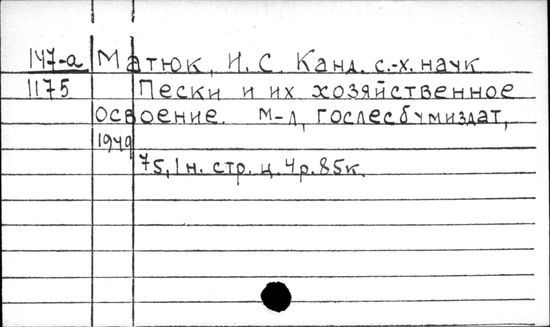 147-а Матюк, И.С. Канд. с.-х. наук
1175 Пески и их хозяйственное
освоение. М-Л, Гослесбумиздат,
1949
75,1н. стр. ц. 4р.85к.